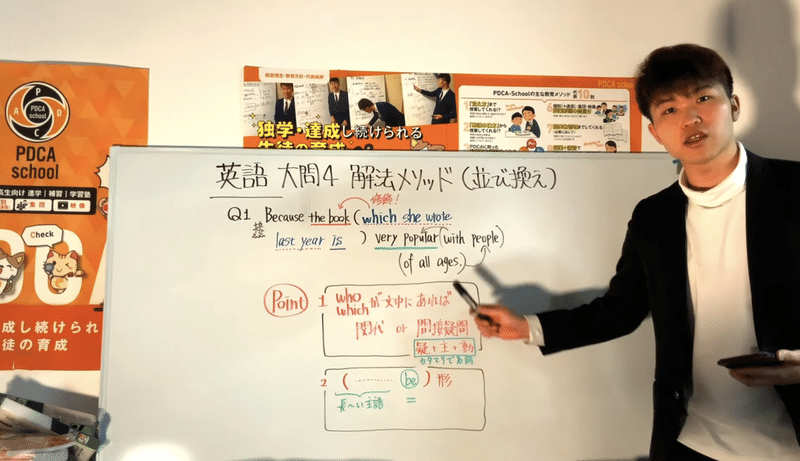 PDCA
school
PDCA
school
高生向け 進学｜補習｜学習塾
集団
映像
Check
成し続けられ
徒の育成
経営理念・教育方針・代表挨拶
独学・達成し続けられる
生徒の育成
PDCA-Schoolの主な教育メソッド
10
PDCA school
英語 大問4 解法メソッド(並び換え)
修飾!
Q1 Because the book (which she wrote
last year is ) very popular (with people)
(of all ages.)
Point
1 who
which が文中にあれば
関代 or 間接疑問
疑+主+動
カタマリで名詞
2 ( ……… be ) 形
長〜い主語 =